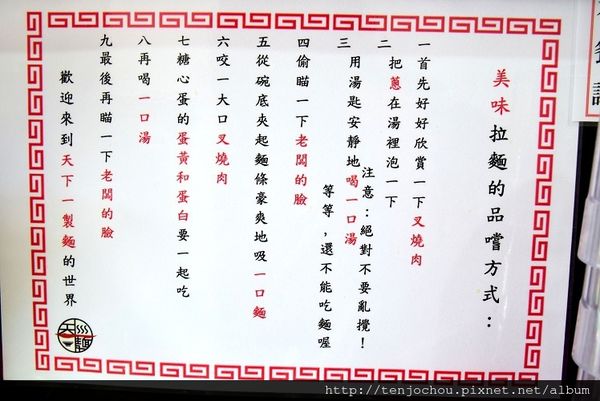 美味拉麵的品嚐方式：
一首先好好欣賞一下叉燒肉
二把蔥在湯裡泡一下
注意：絕對不要亂攪！
三用湯匙安靜地喝一口湯
等等，還不能吃麵喔
四偷瞄一下老闆的臉
五從碗底夾起麵條豪爽地吸一口麵
六咬一大口叉燒肉
七糖心蛋的蛋黃和蛋白要一起吃
八再喝一口湯
九最後再瞄一下老闆的臉
歡迎來到天下一製麵的世界
http://tenjochou.pixnet.net/album